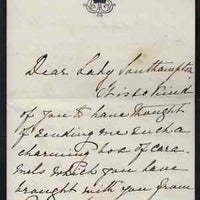 Dear Lady Southampton
It is so kind
of you to have thought
of sending me such a
charming box of cara
mels which you have
brought with you from